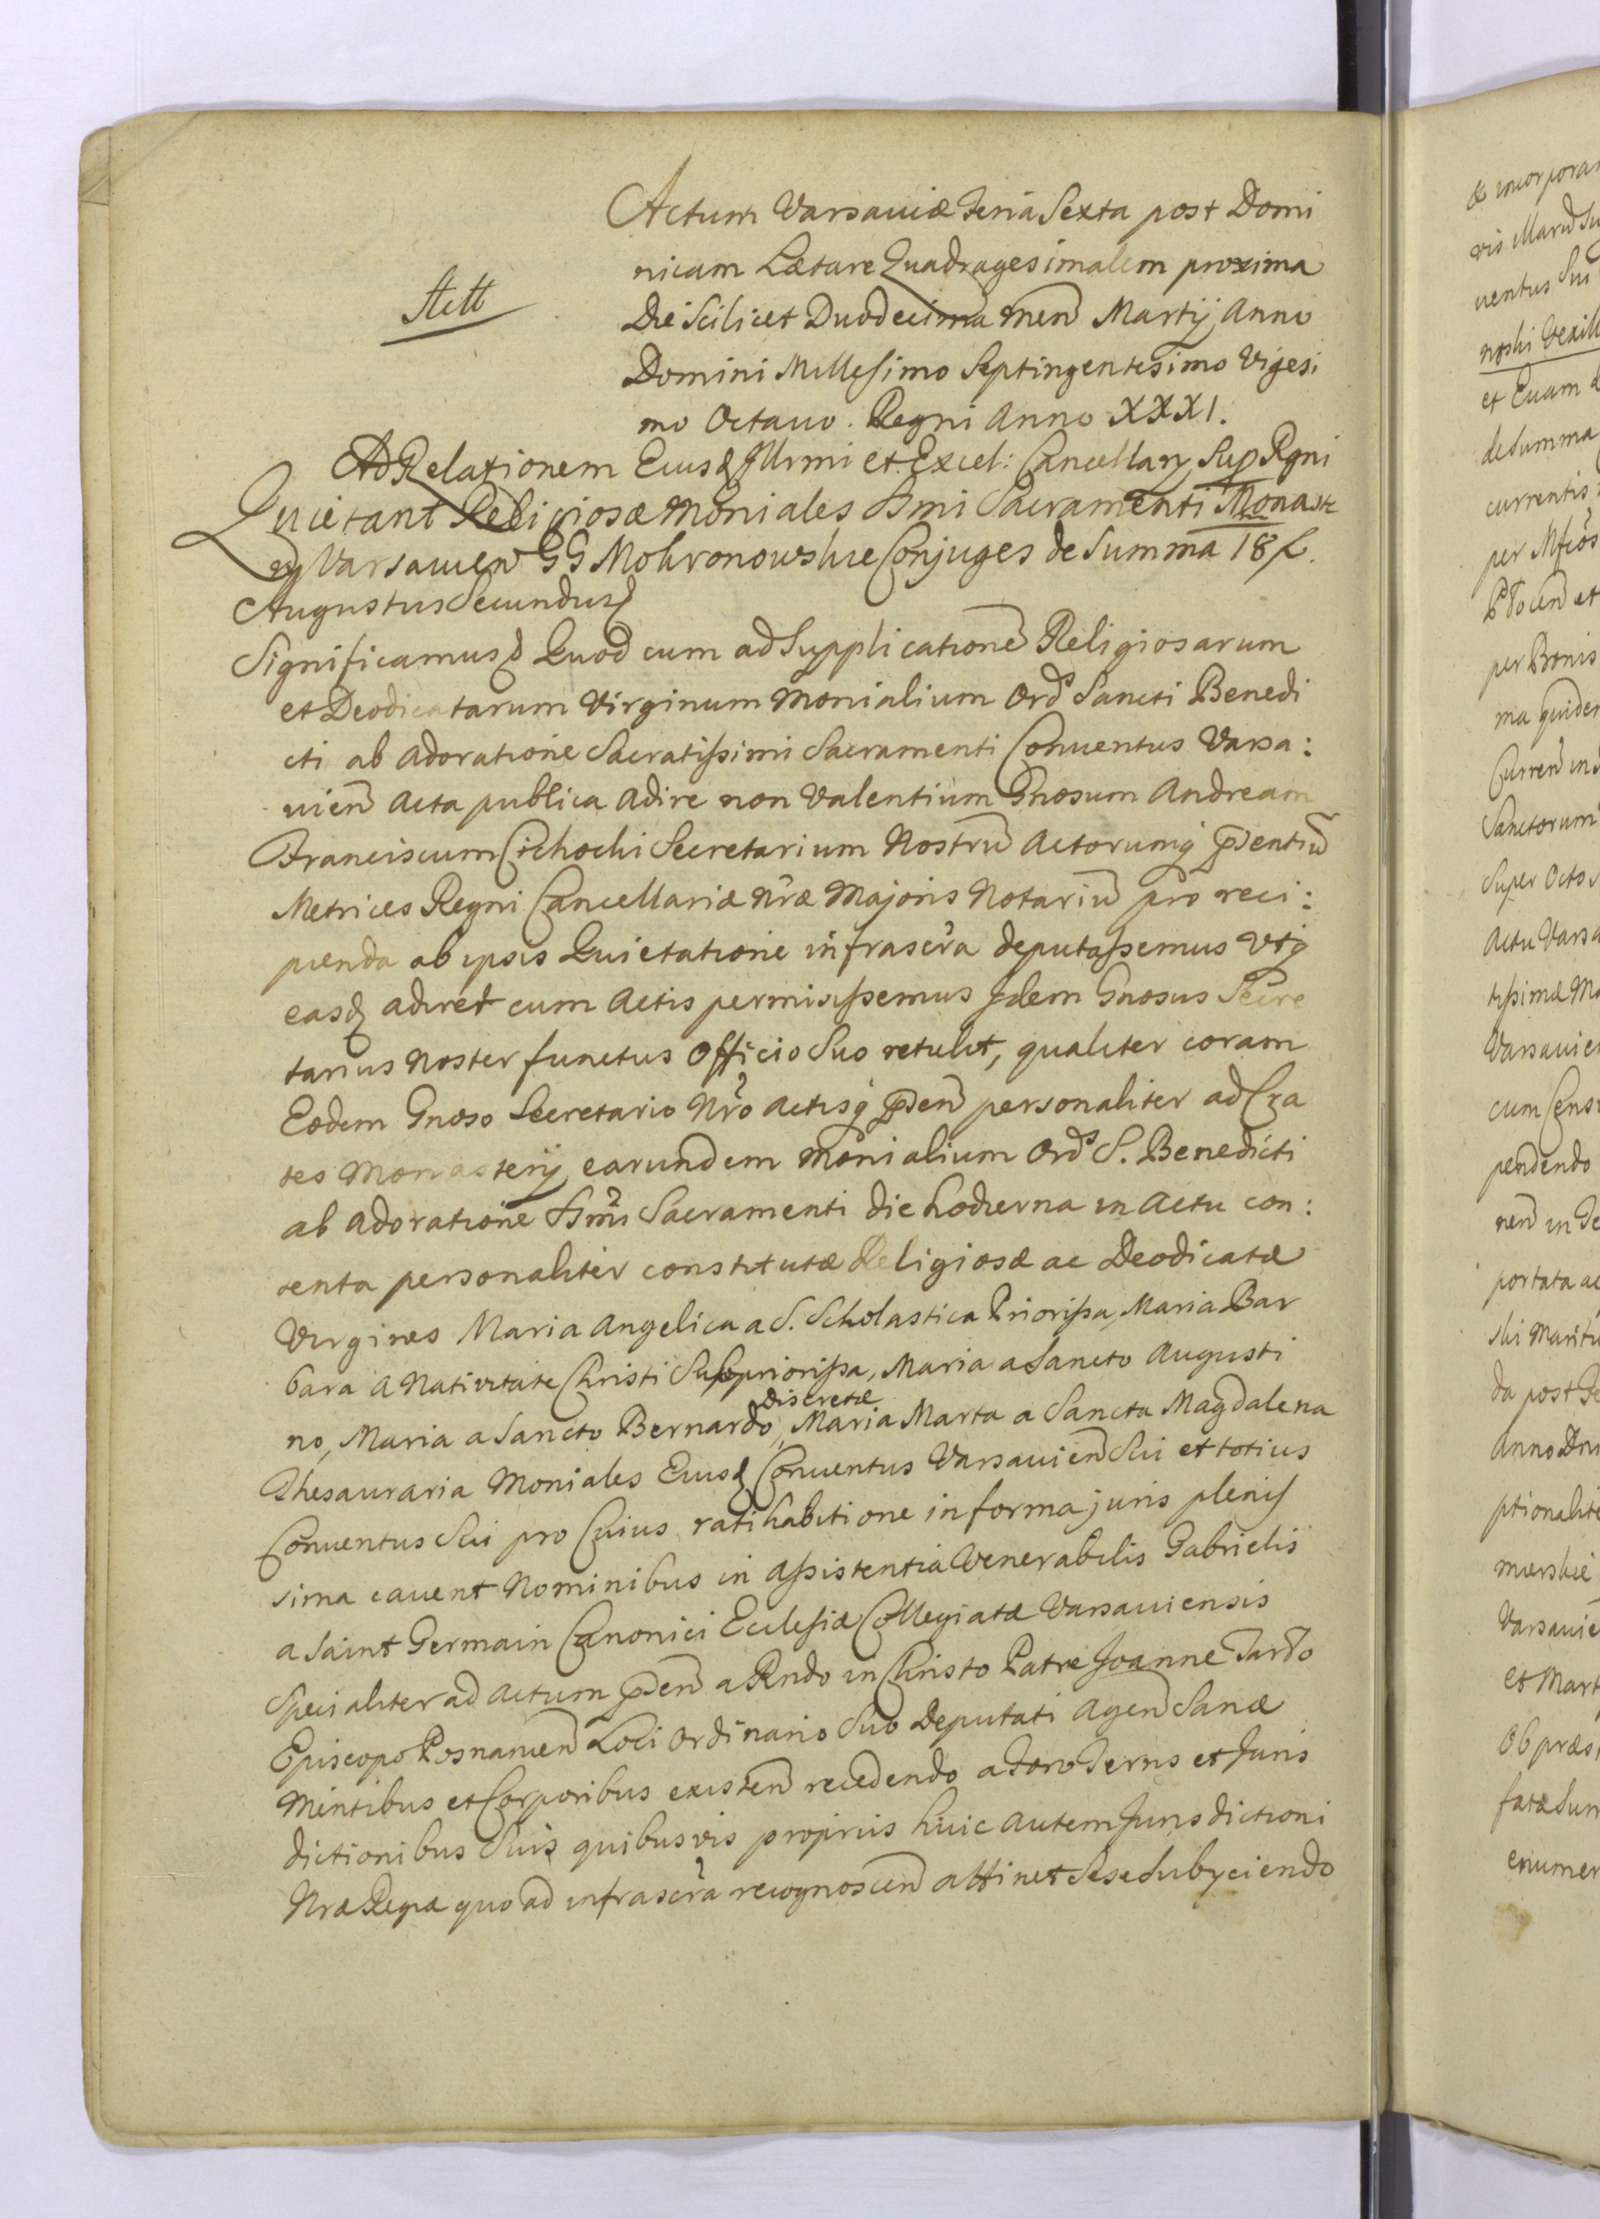 Actum Varsaviæ Feria Sexta post Domi
nicam Lætare Quadragesimalem proxima
Die Scilicet Duodecima Men Martij Anno
Domini Millesimo Septingentesimo Vigesi
mo Octavo. Regni Anno XXXI.
Ad Relationem Eiusd Illrmi et Excel: Cancellarij Sup Rgni
Quietant Religiosæ Moniales Ssmi Sacramenti Monaste
rij Varsavien GG Mokronowskie Conjuges de Summa 18
Augustus Secundus
Significamus Quod cum ad Supplicatione Religiosarum
et Deodicatarum Virginum Monialium Ords Sancti Benedi
cti ab Adoratione Sacratissimi Sacramenti Conventus Varsa:
vien Acta publica Adire non Valentium Gnosum Andream
Franciscum Cichocki Secretarium Nostru Actorumq pdentiu
Metrices Regni Cancellariæ Nræ Majoris Notariu pro reci:
pienda ab ipsis Quietatione infrascra deputassemus Vtq
easd adiret cum Actis permisissemus Idem Gnosus Secre
tarius Noster functus Officio Suo retulit, qualiter coram
Eodem Gnoso Secretario Nro Actisq pden personaliter ad Cra
tes Monasterij earundem Monialium Ords S. Benedicti
ab Adoratione Ssmi Sacramenti die hodierna in Actu con:
tenta personaliter constitutæ Religiosæ ac Deodicatæ
Virgines Maria Angelica a S. Scholastica Priorissa, Maria Bar
bara a Nativitate Christi Subpriorissa, Maria a Sancto Augusti
discretæ
no, Maria a Sancto Bernardo, Maria Marta a Sancta Magdalena
Thesauraria Moniales Eiusd Conventus Varsavien Sui et totius
Conventus Sui pro Cuius ratihabitione in forma juris plenis
sima cavent Nominibus in Assistentia Venerabilis Gabrielis
a Saint Germain Canonici Ecclesiæ Collegiatæ Varsaviensis
Specialiter ad Actum pden a Rndo in Christo Patre Joanne Tarło
Episcopo Posnanien Loci Ordinario Suo Deputati Agen Sanæ
Mentibus et Corporibus existen recedendo a Foro Terris et Juris
dictionibus Suis quibusvis propriis huic autem Jurisdictioni
Nræ Regiæ quo ad infrascra recognoscen attinet Sese Subyciendo
Stett
& incorporan
ventus Sui
et Evam
de Summa
currentis
per Bonis
ma quidem
Sanctorum
Super Octo
Actu Varsa
tissimæ Mo
Varsavien
cum Cens
pendendo
portata ac
ski Maritu
da post Fe
ptionalite
Varsavie
et Mart
Ob præs
fatæ Sum
enumer